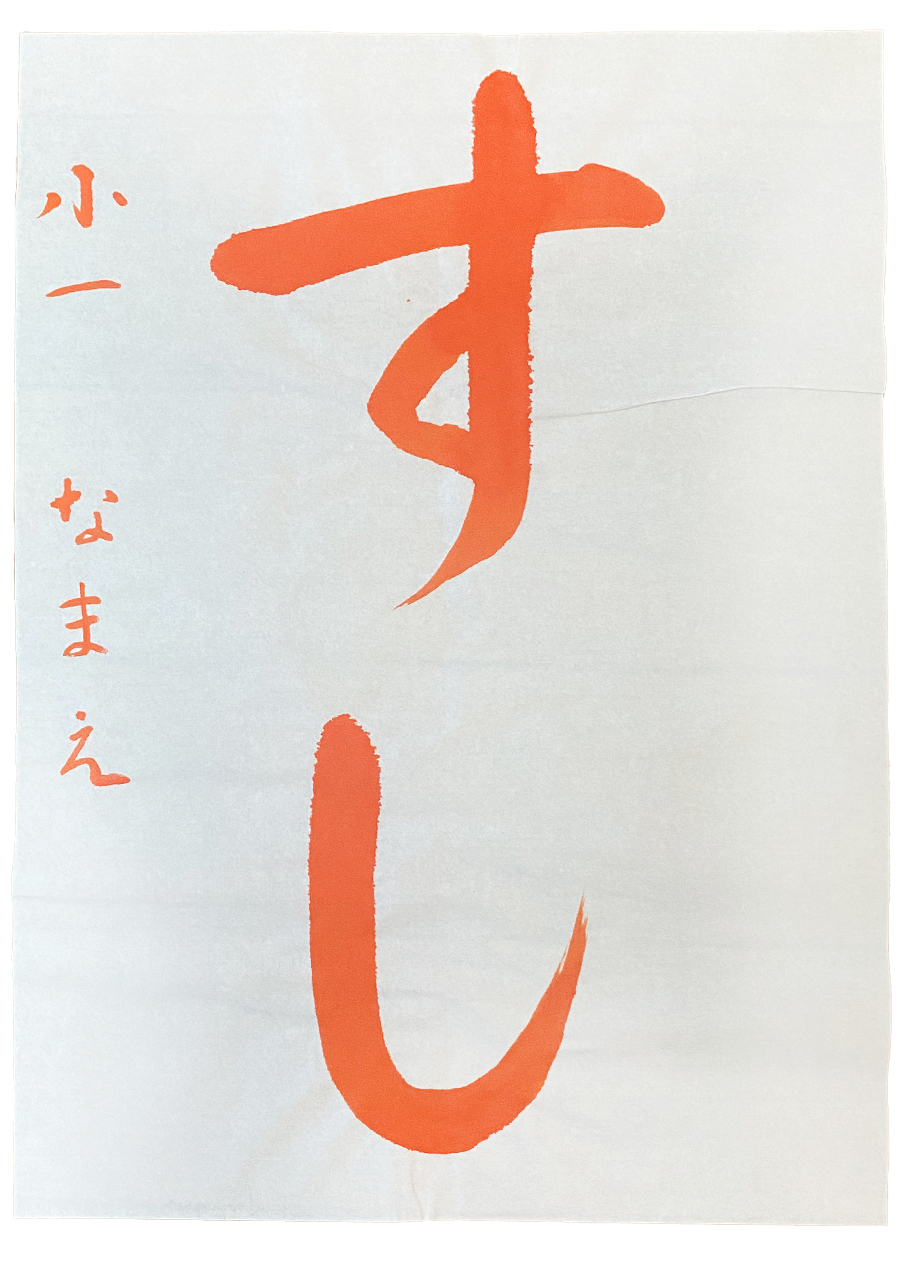 すし
小一 なまえ